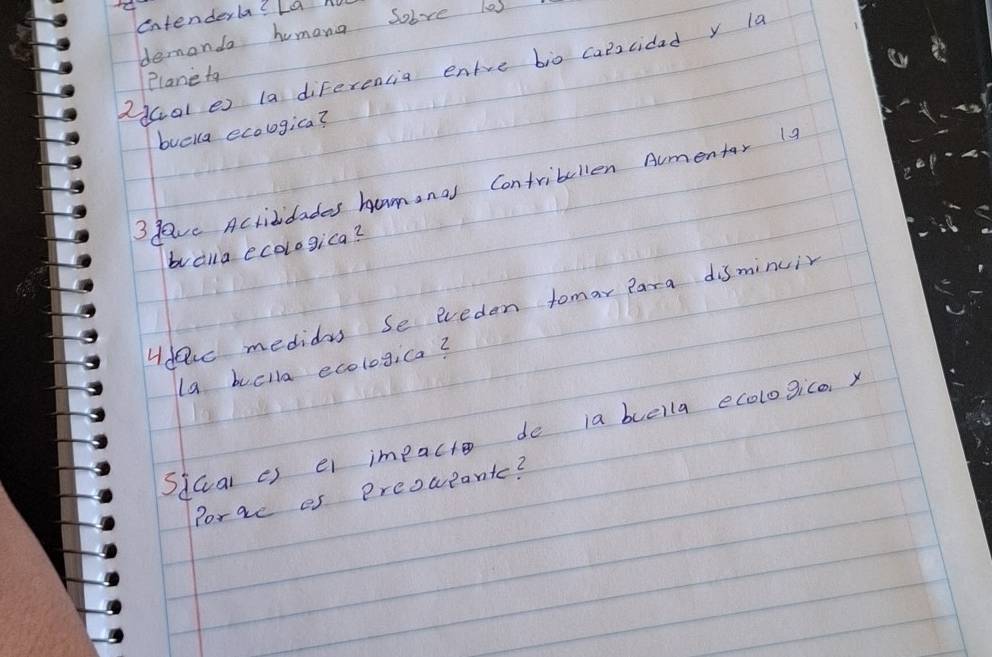 entenderla? La
demanda humana Sobre los
Planeta
2¿Cual es la diferencia entre bio capacidad y la
buella ecologica?
3¿Que Actibidades humanas Contribullen Aumentar la
buella ecologica?
4¿Que medidas Se Pueden tomar Para disminuir
la buella ecologica?
5¿Cual es el impacto de la buella ecologica y
Porque es Preocupante?